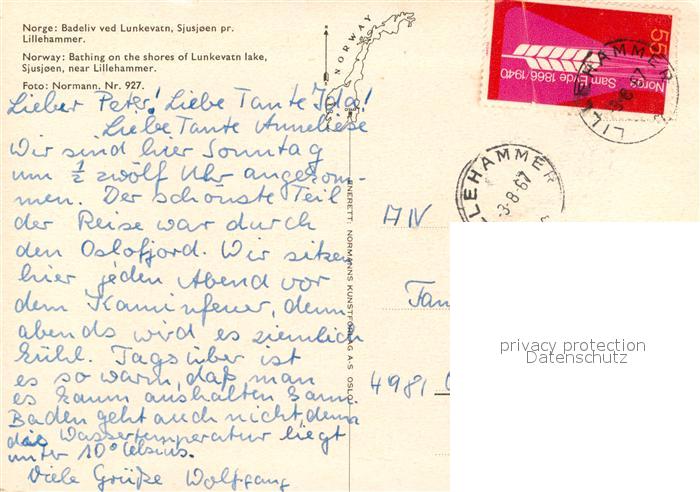 Norge: Badeliv ved Lunkevatn, Sjusjøen pr.
Lillehammer.
Norway: Bathing on the shores of Lunkevatn lake,
Sjusjøen, near Lillehammer.
Foto: Normann. Nr. 927.
NORWAY
55
Norge
Sam Eyde 1866/1940
LILLEHAMMER
LILLEHAMMER
-3-8-67
Lieber Peter! Liebe Tante Ilse!
Liebe Tante Anneliese
Wir sind hier Sonntag
um ½ zwölf Uhr angekom-
men. Der schönste Teil
der Reise war durch
den Oslofjord. Wir sitzen
hier jeden Abend vor
dem Kaminfeuer, denn
abends wird es ziemlich
kühl. Tagsüber ist
es so warm, daß man
es kaum aushalten kann
Baden geht auch nicht denn
die Wassertemperatur liegt
unter 10° Celsius.
Viele Grüße Wolfgang
ENERETT: NORMANNS KUNSTFORLAG A.S OSLO
AN
Fam
4981
privacy protection
Datenschutz